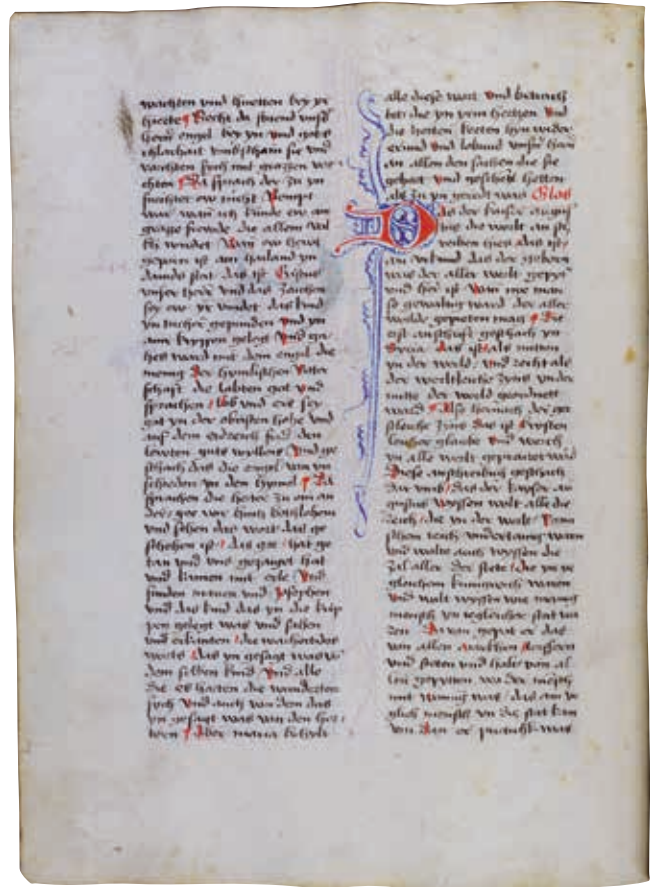 wachten vnd huetten bey yr
herte Secht da stuend vnsers
herrn engel bey yn vnd gots
chlarhait vmbscham sie vnd
vorchten sych mit grossen vor
chten Da sprach der zu yn
furchtet ew nicht
war wan ich kunde ew an
grosse frewde die allem vol
kch wirdet Wan ew hewt
geporn ist ain hailand yn
dauids stat das ist Cristus
vnser herr vnd das zaichen
sey ew yr vindet das kind
yn tucher gepunden vnd yn
ain krippen gelegt Vnd ge
hes ward mit dem engel die
menig der hymlischen Ritter
schafft die lobten got vnd
sprachen lob vnd ere sey
got yn der obristen hohe vnd
auf dem erdreich frid den
lewten guts wyllens Vnd ge
schach das die engel van yn
schieden yn den hymel Da
sprachen die herter zu ein an
der gee wir hintz bethlehem
vnd sehen das wort das ge
schehen ist das got hat ge
tan vnd vns getzaigt hat
vnd kamen mit eyle Vnd
funden mariam vnd Josephen
vnd das kind das yn die krip
pen gelegt was vnd sahen
vnd erkanten die warhait des
worts das yn gesagt was von
dem selben kind Vnd alle
die es horten die wunderten
sych Vnd auch van dem das
yn gesagt was van den her
tern Aber maria behielt
alle diese wort vnd betracht
tet die yn yrem hertzen Vnd
die herten kerten hyn wider
erund vnd lobund vnsern herrn
an allen den sachen die sie
gehort vnd gesehen hetten
als zu yn geredt was Glos
Das der kaiser augus
tus die welt an sch
reiben hies das ist
ain vrkund das der geborn
was der aller welt
vnd her ist Wan wie man
so gewaltig ward der aller
welde gepieten mag Die
erst anschrift geschach yn
Syria das ist als mitten
yn der werld vnd recht als
der werltleiche zyns vnder
mitte der werld geordnett
ward Also hernach der gei
stleiche zyns das ist Cristen
leicher glaube vnd werch
yn alle werlt gepraitet ward
Diese anschreibung geschach
dar vmb das der kayser au
gustus wyssen wolt alle die
reich die yn der welt Ramm
schem reich vndertanig waren
Vnd wolte auch wyssen die
zal aller der stete die yn yr
gleichem kunigreich waren
Vnd wolt wyssen wie menig
mensch yn iegleicher stat wa
ren Da van gepot er das
von allen
vnd steten vnd
mit was das ain ye
glich mensch yn die stat kam
van dan er purtich was